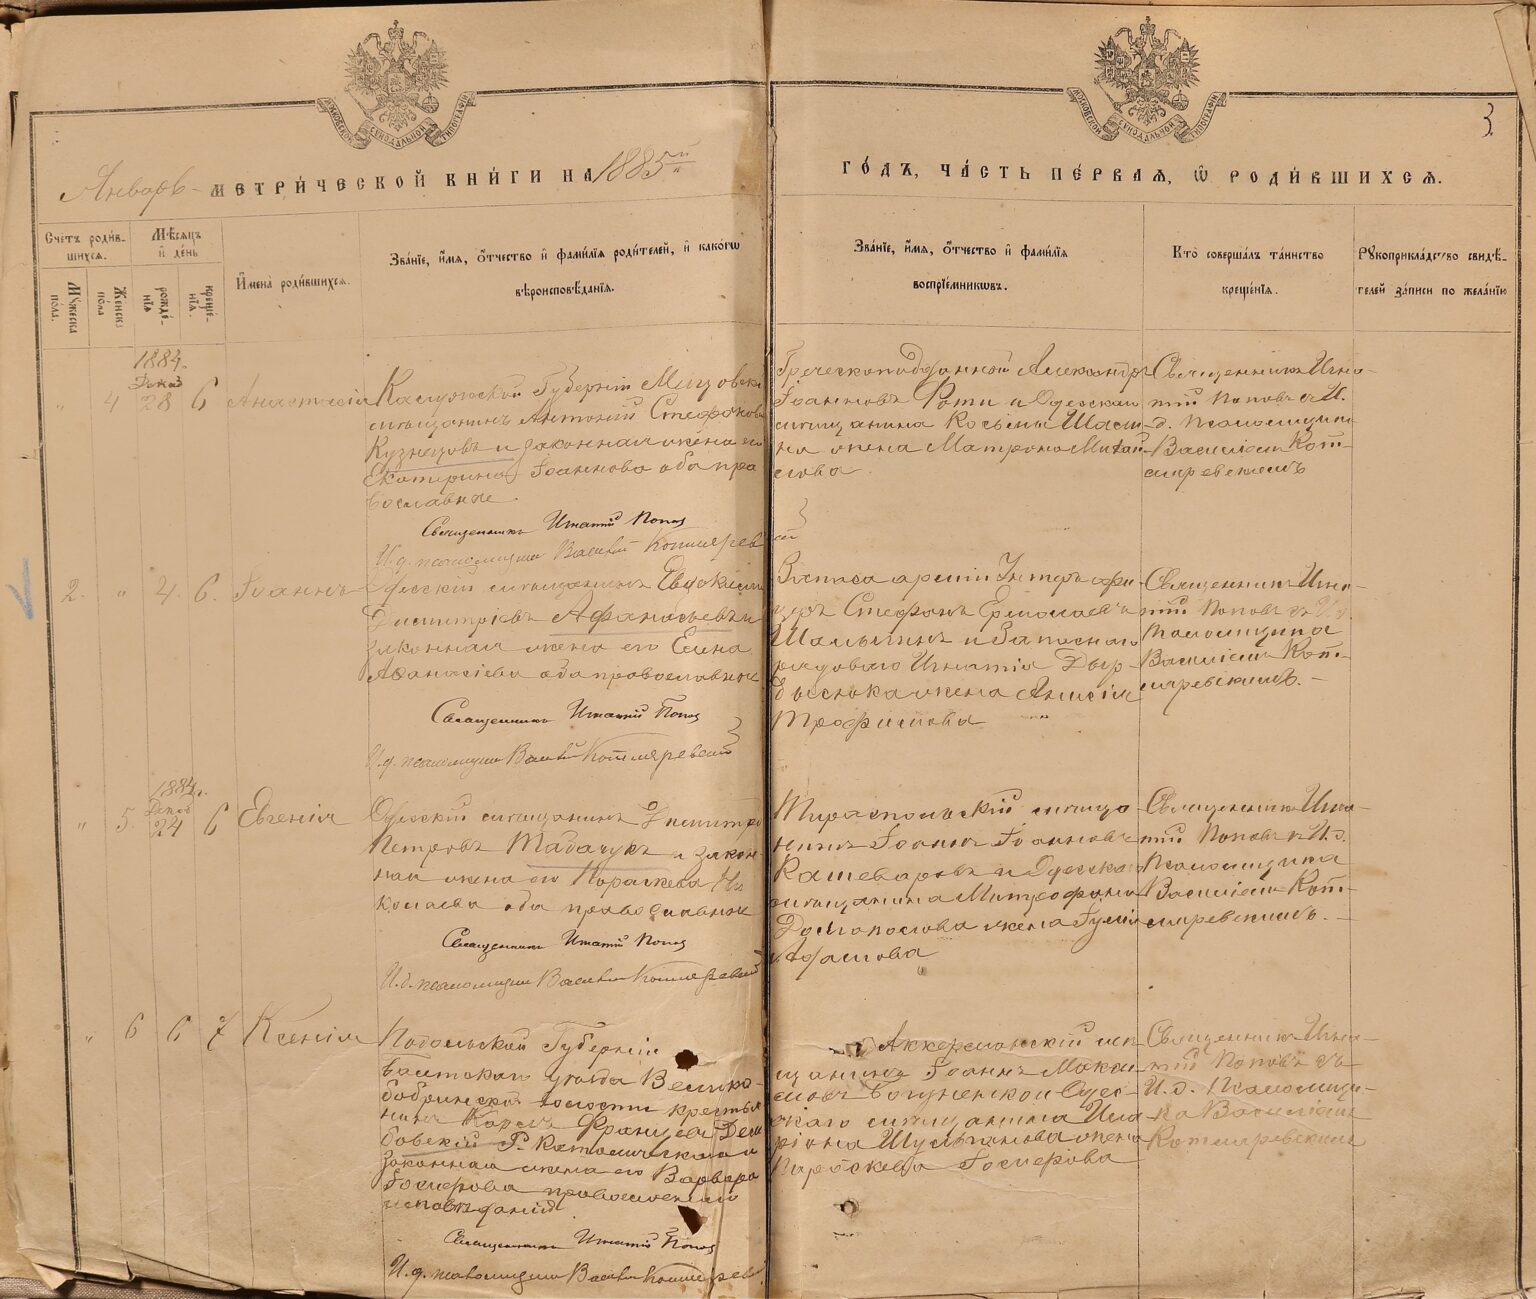 МОСКОВСКОЙ СѴНОДАЛЬНОЙ ТИПОГРАФІИ
МОСКОВСКОЙ СѴНОДАЛЬНОЙ ТИПОГРАФІИ
3.
Январь МЕТРИЧЕСКОЙ КНИГИ НА 1885й
ГОДЪ, ЧАСТЬ ПЕРВАЯ, Ѡ РОДИВШИХСЯ.
Счетъ родив-
шихся.
Мужеска пола.
Женска пола
Мѣсяцъ
и день
рожде-
нія
креще-
нія.
Имена родившихся.
Званіе, имя, отчество и фамилія родителей, и какогѡ
вѣроисповѣданія.
Званіе, имя, отчество и фамилія
воспріемникѡвъ.
Кто совершалъ таинство
крещенія.
Рукоприкладство свидѣ-
телей записи по желанію
1884.
Декаб
" 4 28 6 Анастасія
Калужской Губерніи
мѣщанинъ Антоній Стефановъ
Кузнецовъ и законная жена его
Екатерина Іоаннова оба пра
вославные.
Священникъ Игнатій Попов
И.д. псаломщика Василій Котляревский
Греческоподданной Александръ
Іоанновъ Фоти и Одесскаго
мѣщанина Косьмы
на жена Матрона Михай
лова
Священникъ Игна-
тій Поповъ съ И.
д. псаломщика
Василіемъ Кот-
ляревскимъ
2. " 4. 6. Іоаннъ
Одесскій мѣщанинъ Евдокимъ
Димитріевъ Афанасьевъ и
законная жена его Елена
Афанасіева оба православные
Священникъ Игнатій Попов
И.д. псаломщика Василій Котляревский
Запаса арміи Унтеръ офи
церъ Стефанъ Ермолаевъ
и Запаснаго
рядоваго Игнатія Дыр-
жена Анисія
Трофимова
Священникъ Игна-
тій Поповъ съ И.д.
Псаломщика
Василіемъ Кот-
ляревскимъ.
1884г.
Декаб
" 5. 24 6 Евгенія
Одесскій мѣщанинъ Димитрій
Петровъ Табачукъ и закон-
ная жена его Параскева Ни
колаева оба православные
Священникъ Игнатій Попов
И.д. псаломщика Василій Котляревский
Тираспольскій мѣща
нинъ Іоаннъ Іоанновъ
Кашеваровъ и Одесскаго
мѣщанина Митрофана
жена Гулія
Священникъ Игна-
тій Поповъ съ И.д.
Псаломщика
Василіемъ Кот-
ляревскимъ.
" 6 6 7 Ксенія
Подольской Губерніи
Балтскаго уѣзда Велико-
бобринской волости крестья
нинъ Карлъ Францевъ
Р. Католическаго и
законная жена его Варвара
Іосифова православнаго
исповѣданія
Священникъ Игнатій Попов
И.д. псаломщика Василій Котляревский
Аккерманскій мѣ
щанинъ Іоаннъ Макси
мовъ и Одес-
скаго мѣщанина Ила
ріона жена
Параскева Іосифова
Священникъ Игна-
тій Поповъ съ
И.д. Псаломщи-
ка Василіемъ
Котляревскимъ